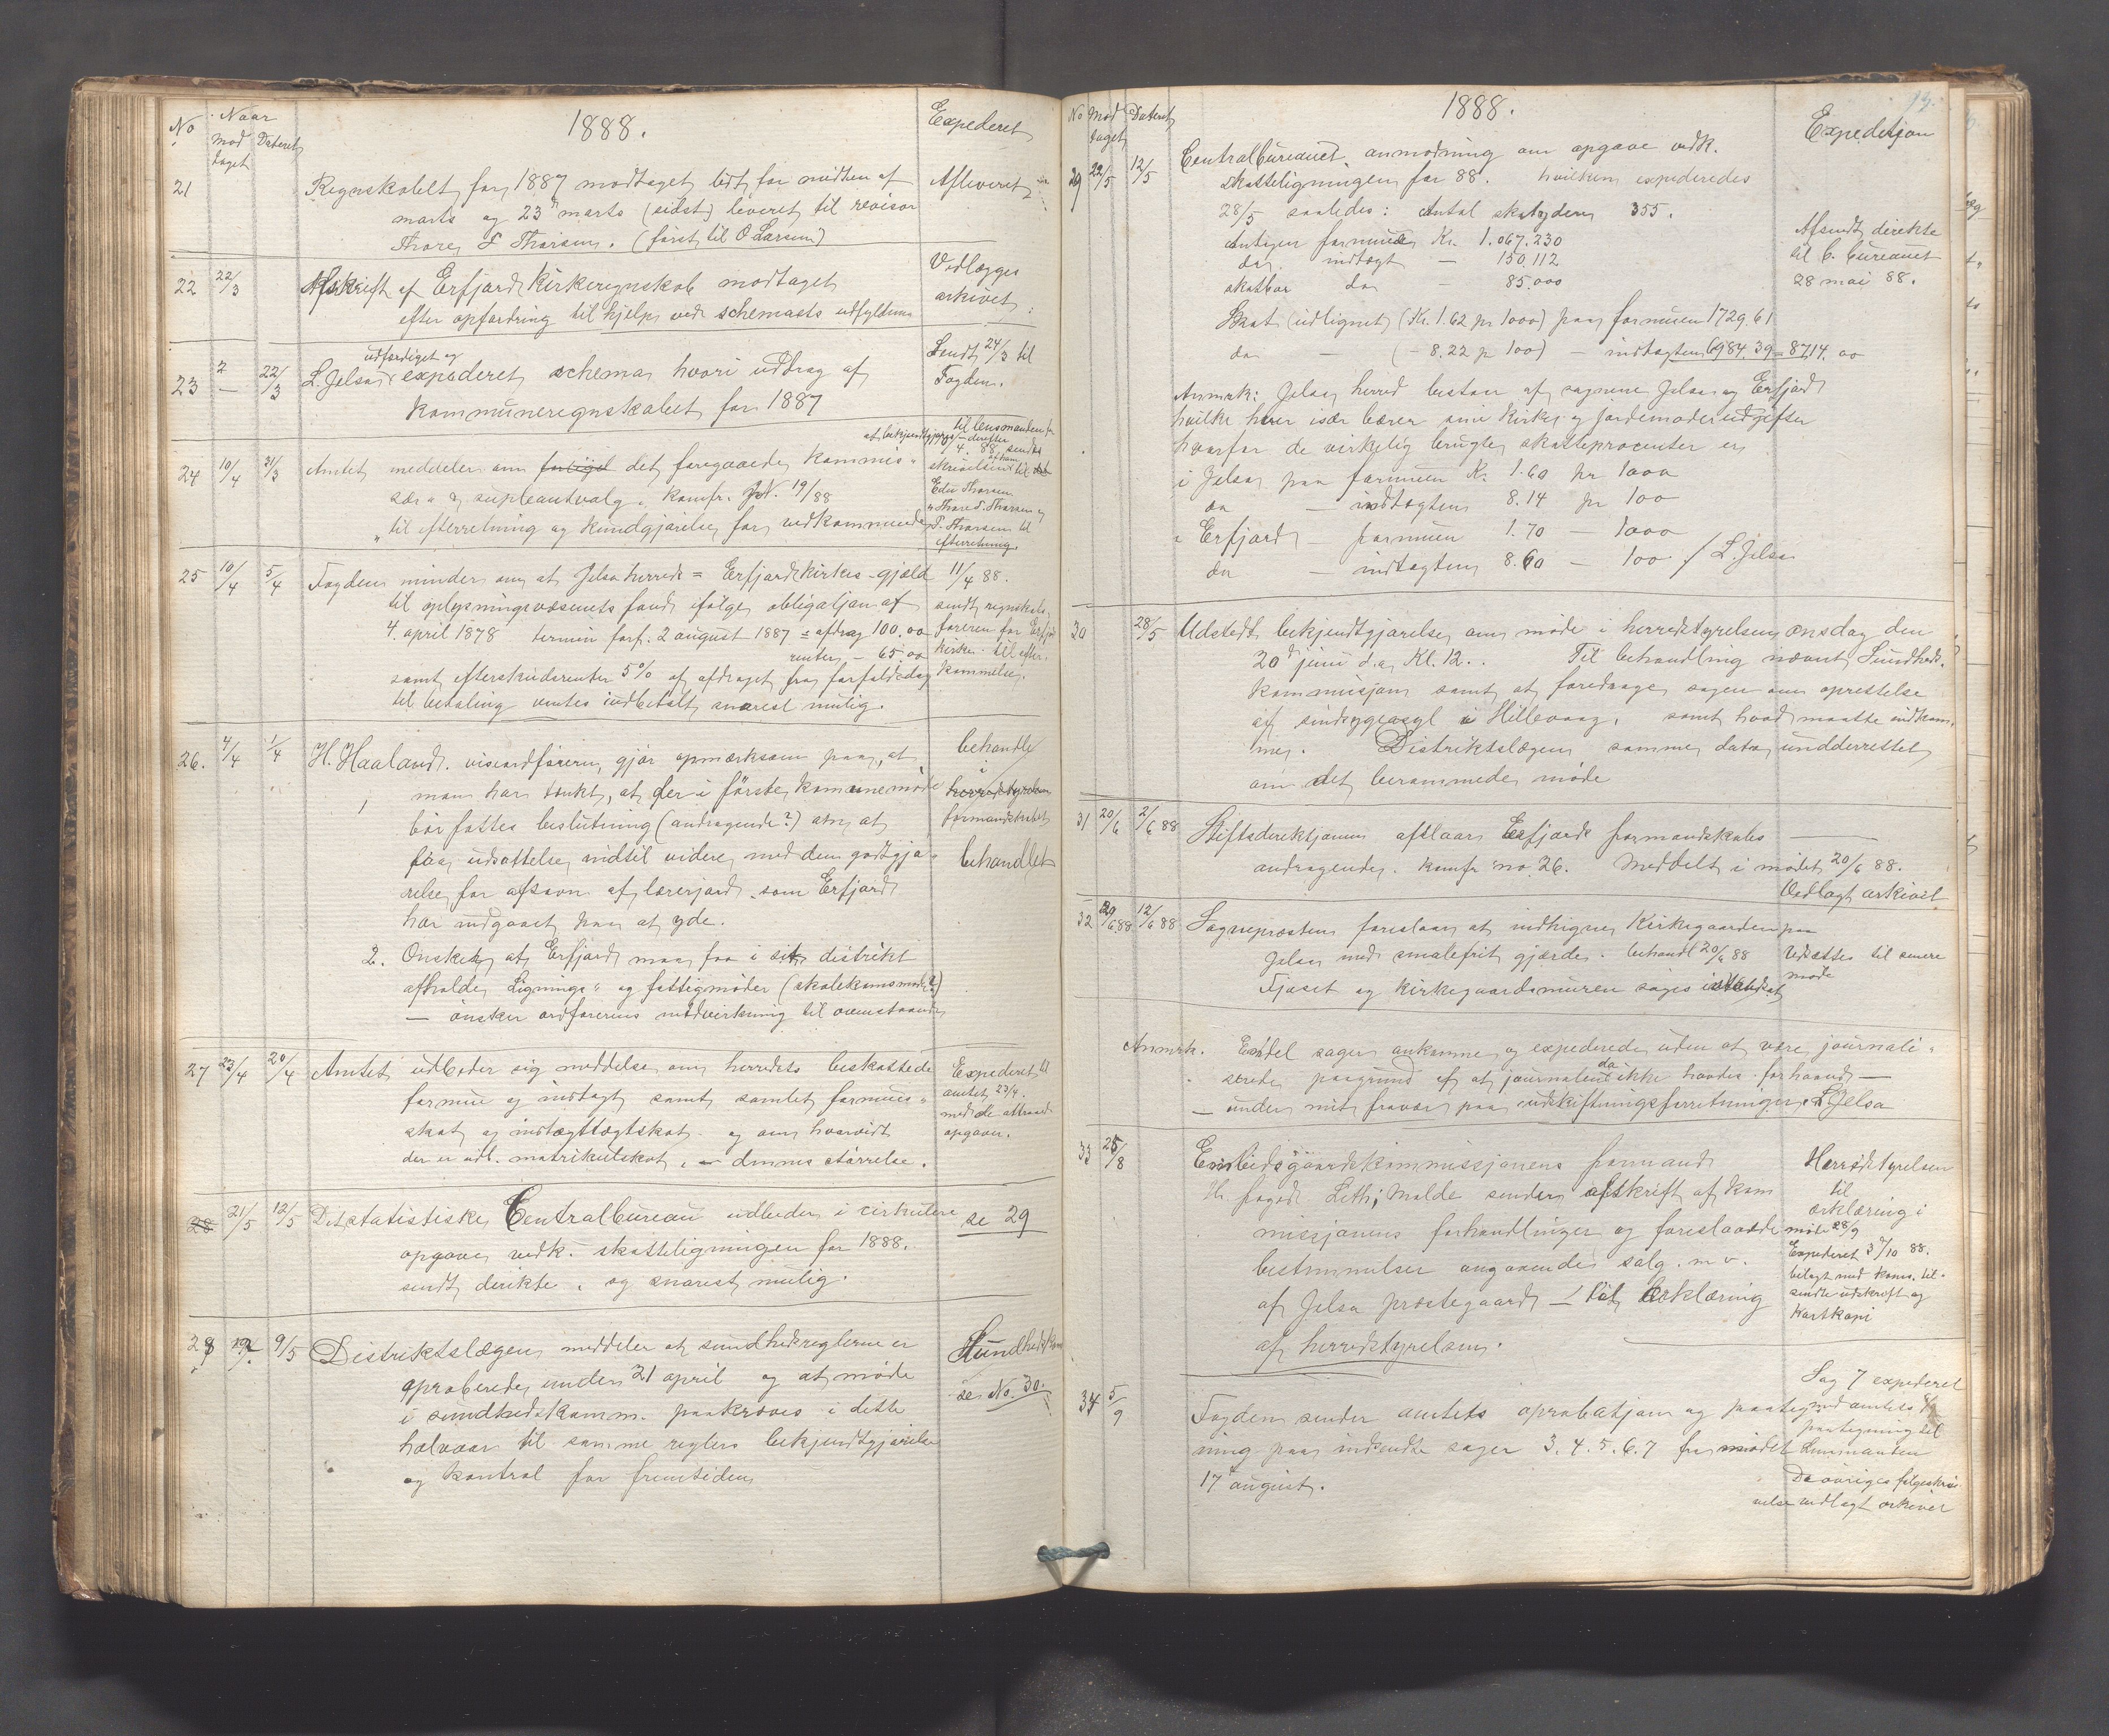 No Naar modtaget Dateret 1888. Expederet
21 Regnskabet for 1887 modtaget lidt før midten af Afleveret
marts og 23 marts (sidst) leveret til revisor
Thore T Thorsen. (først til O Larsen)
22 22/3 Afskrift af Erfjord Kirkeregnskab modtaget Vedlægges
efter opfordring til hjelp ved schemaets udfyldning arkivet
udfærdiget og
23 2 — 22/3 L. Jelsa expederet schema hvori uddrag af Sendt 24/3 til
kommuneregnskabet for 1887 Fogden.
til lensmanden for
at bekjendtgjøres — derefter
24 10/4 31/3 Amtet meddeler om det foregaaede kommis-
sær- og supleantvalg, konfr. No. 19/88
til efterretning og kundgjørelse for vedkommende
skrivelsen til
Edv Thorsen
Thore T. Thorsen og
T. Thorsen til
efterretning.
25 10/4 5/4 Fogden minder om at Jelsa herred = Erfjord kirkes gjæld 11/4 88.
til oplysningsvæsenets fond ifølge obligatjon af sendt regnskabs-
4. april 1878 termin forf. 2 august 1887 = afdrag 100.00 føreren for Erfjo
renter — 65.00 kirke - til efter-
samt efterskudsrenter 5% af afdraget fra forfaldsdag kommelse.
til betaling ventes indbetalt snarest mulig.
26. 4/4 1/4 H. Haaland. viseordføreren, gjør opmærksom paa, at behandle
1 man har tænkt, at der i første kommunemøde i herredstyrelsen
bør fattes beslutning (andragende?) om at formandskabet
faa udsættelse indtil videre med den godtgjø- behandlet
relse for afsavn af lærerjord som Erfjord
har indgaaet paa at yde.
2. Ønskelig at Erfjord maa faa i sit distrikt
afholde Lignings- og fattigmøder (skolekomsmøde?)
— ønsker ordførerens medvirkning til ovenstaaende
27 23/4 20/4 Amtet udbeder sig meddelse om herredets beskattede Expederet til
formue og indtægt samt samlet formues- amtet 23/4.
skat og indtægtsskat. og om hvorvidt med de attraaede
der er udl. matrikulskat, — dennes størrelse. opgaver.
28 21/5 12/5 Det statistiske Centralbureau udbeder i cirkulære se 29
opgave vedk. skatteligningen for 1888.
sendt direkte. og snarest mulig.
28 19/5 9/5 Distriktslægen meddeler at sundhedsreglerne er Sundhedskom
aproberede under 21 april og at møde se No. 30.
i sundhedskomm. paakræves i dette
halvaar til samme reglers bekjendtgjørelse
og kontrol for fremtiden
No Modtaget Dateret 1888. Expeditjon
29 22/5 12/5 Centralbureauet. anmodning om opgave vedk.
skatteligningen for 88. hvilken expederedes
28/5 saaledes: Antal skatydere 355.
Antagen formue Kr. 1.067.230 Afsendt direkte
do indtægt — 150.112 til C. bureauet
skatbar do — 85.000 28 mai 88.
Skat (udlignet) (Kr. 1.62 pr 1000) paa formuen 1729.61
do — (- 8.22 pr 100) — indtægten 6984.39 = 8714.00
Anmrk: Jelsa herred bestaar af sognene Jelsa og Erfjord
hvilke hver især bærer sine kirke og jordemoderudgifter
hvorfor de virkelig brugte skatteprocenter er
i Jelsa paa formuen Kr. 1.60 pr 1000
do — indtægten 8.14 pr 100
i Erfjord — formuen 1.70 — 1000
do — indtægten 8.60 — 100 / L. Jelsa
30 28/5 Udstedt bekjendtgjørelse om møde i herredstyrelsen onsdag den
20 juni d.a. Kl. 12.. Til behandling nævnt Sundheds-
kommisjon samt at foredrage sagen om oprettelse
af sindsygeasyl i Hillevaag, samt hvad maatte indkom-
me. Distriktslægen samme dato underrettet
om det berammede møde
31 20/6 2/6 88 Stiftsdirektjonen afslaar Erfjord formandskabs
andragende. konfr no. 26. Meddelt i mødet 20/6 88.
Vedlagt arkivet
32 20/6 88 12/6 88 Sogneprosten foreslaar at indhigne Kirkegaarden paa
Jelsa med smalefrit gjærde. behandl 20/6 88 Udsættes til senere
Fjøset og kirkegaardsmuren søges istandsat møde
Anmrk. Endel sager ankomne og expederede uden at være journali-
serede paagrund af at journalen da ikke havdes forhaand —
— under mit fravær paa udskiftningsforretninger. L Jelsa
33 25/8 Embedsgaardskommissjonens formand Herredstyrelsen
Hr. foged Lith; Molde sender afskrift af kom til
missjonens forhandlinger og foreslaaede erklæring i
møde 28/9
bestemmelser angaaende salg. m v. Expederet 3/10 88.
af Jelsa prostegaard — til erklæring bilagt med kom. til-
af herredstyrelsen. sendte udskrift og
kartkopi
34 5/9 Fogden sender amtets aprobatjon og paateg- Sag 7 expederet
ning paa indsendte sager 3. 4. 5. 6. 7 fra mødet med amtets
17 august. paategning til
lensmanden
De øvrige følgeskri-
velse vedlagt arkivet